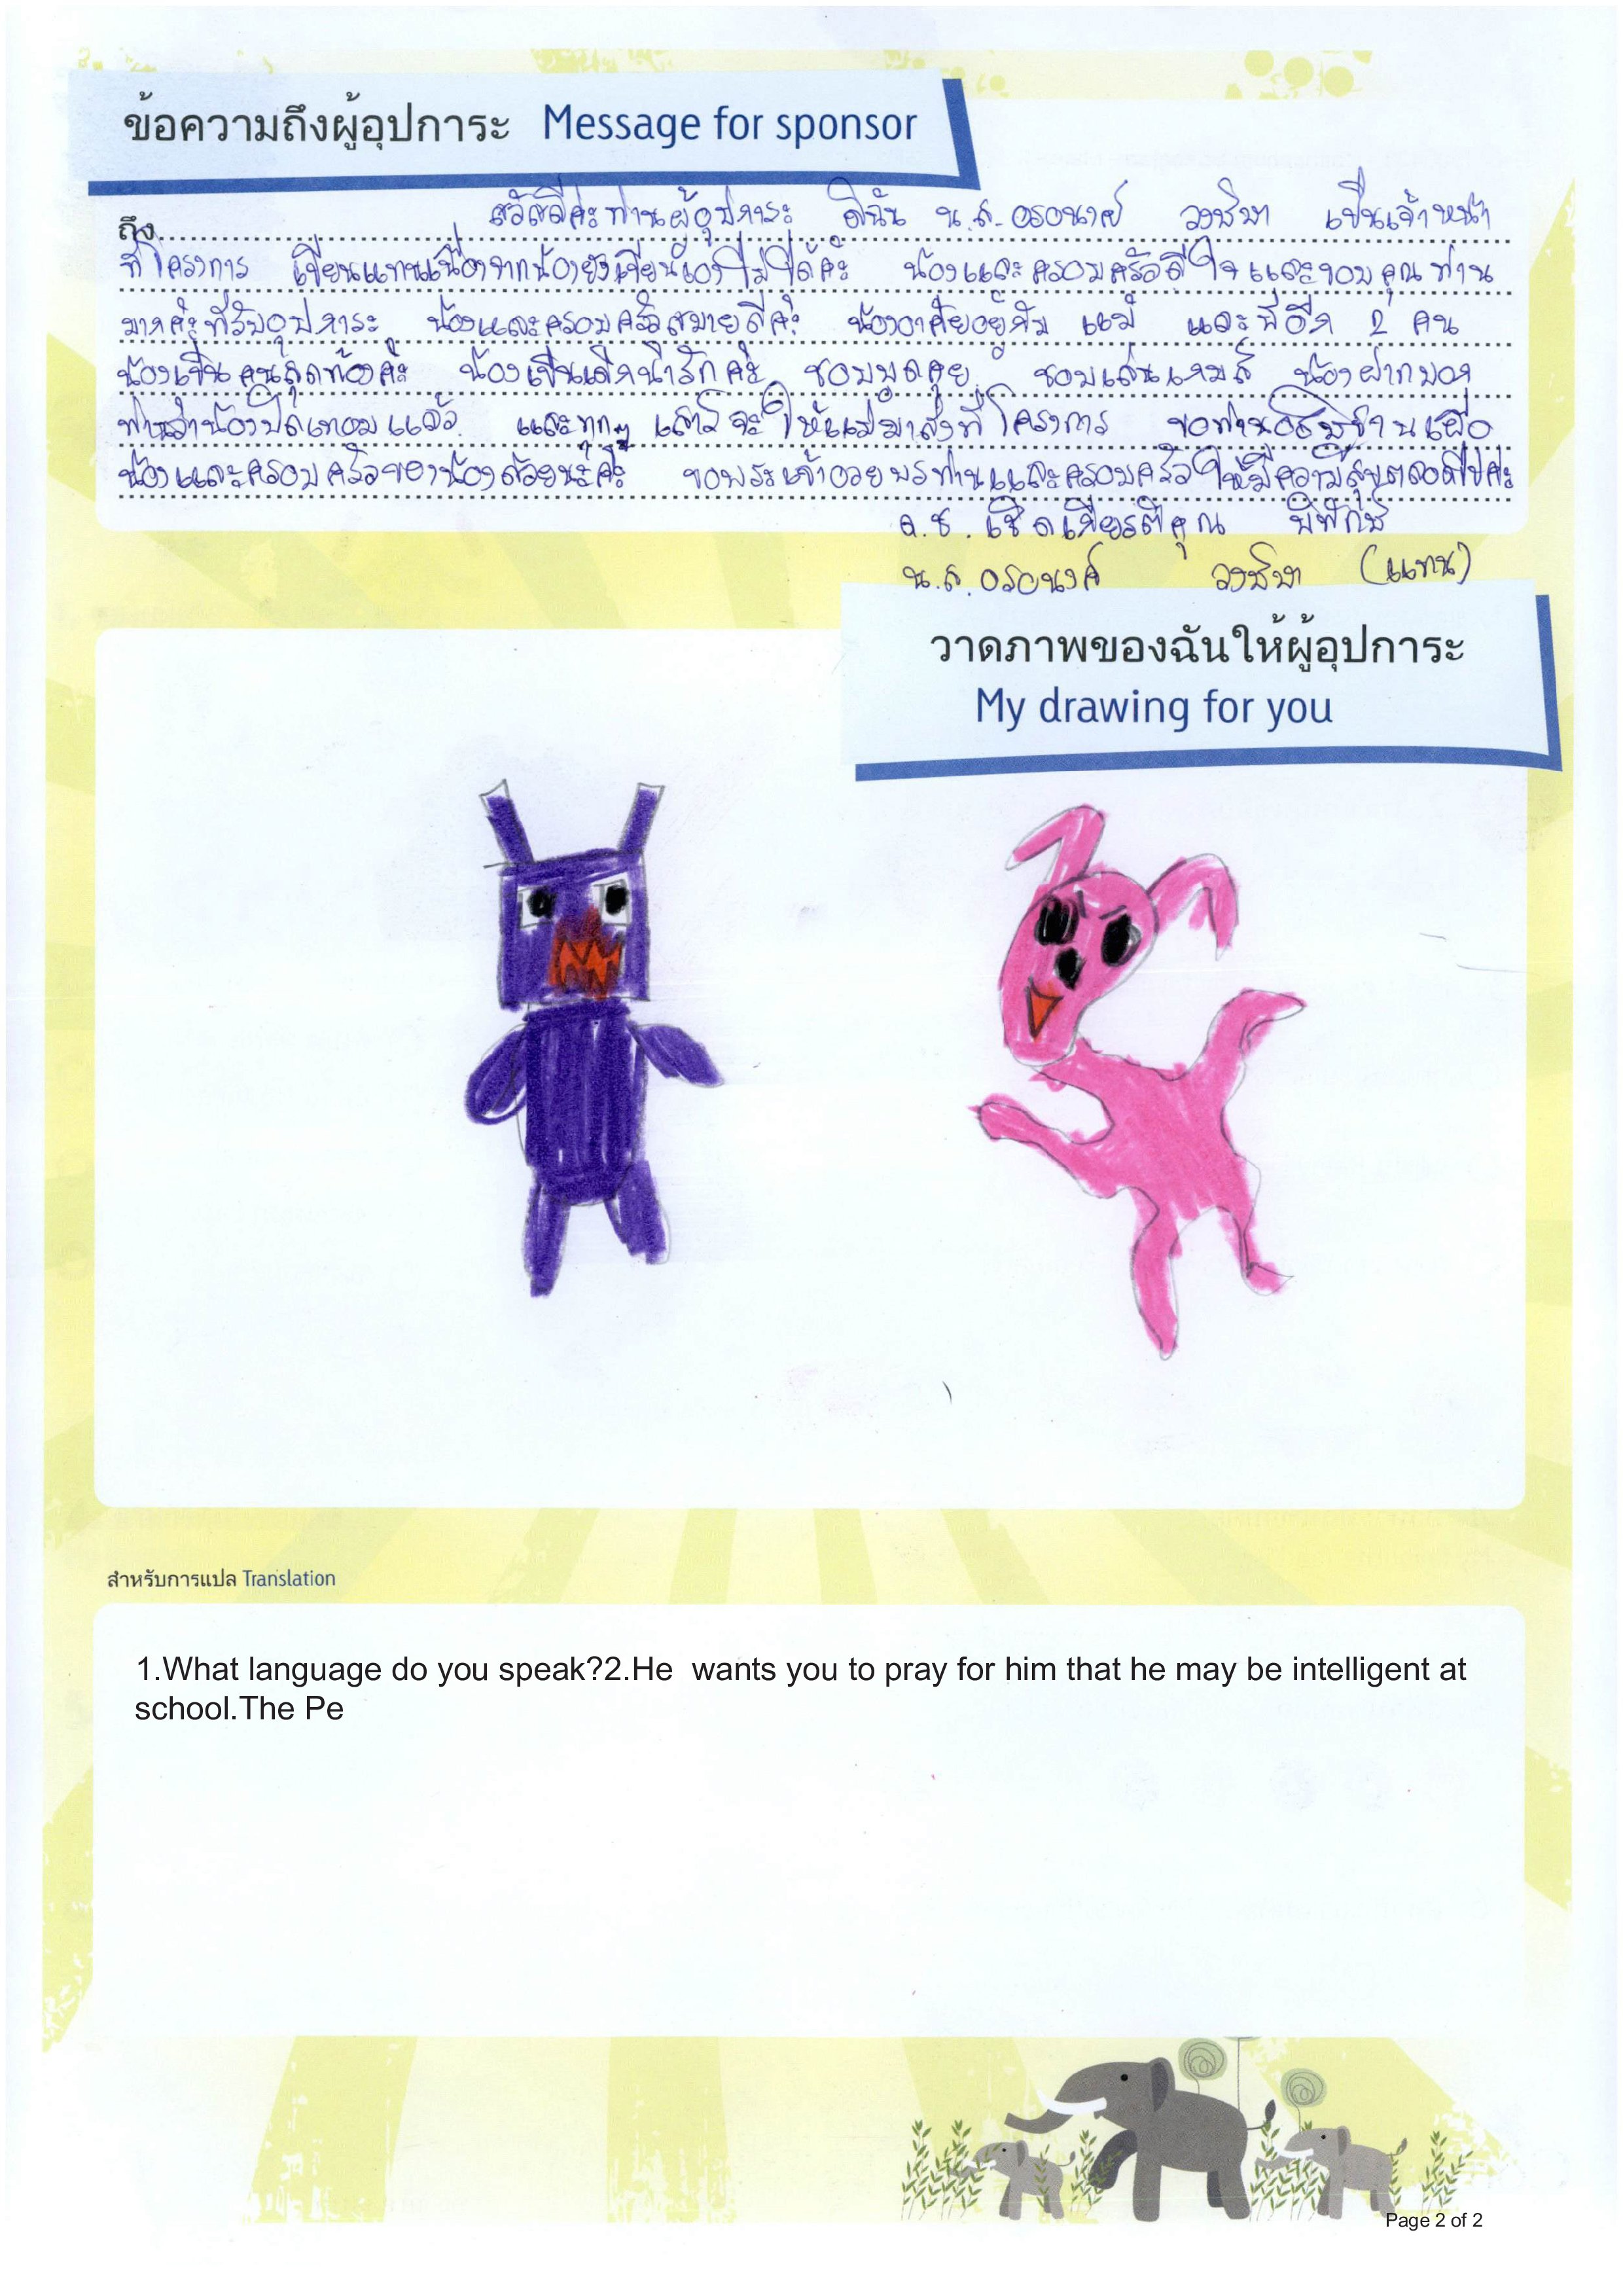 ข้อความถึงผู้อุปการะ Message for sponsor
ถึง สวัสดีค่ะท่านผู้อุปการะ ดิฉัน น.ส. อรอนงค์ วงษ์ษา เป็นเจ้าหน้า
ที่โครงการ เขียนแทนเนื่องจากน้องยังเขียนเองไม่ได้ค่ะ น้องและครอบครัวดีใจและขอบคุณท่าน
มากค่ะที่รับอุปการะ น้องและครอบครัวสบายดีค่ะ น้องอาศัยอยู่กับ แม่ และพี่อีก 2 คน
น้องเป็นคนสุดท้องค่ะ น้องเป็นเด็กน่ารักค่ะ ชอบพูดคุย ชอบเล่นเกมส์ น้องฝากบอก
ท่านว่าน้องปิดเทอมแล้ว และทุกๆ เสาร์จะให้แม่มาส่งที่โครงการ ขอท่านอธิษฐานเผื่อ
น้องและครอบครัวของน้องด้วยนะคะ ขอพระเจ้าอวยพรท่านและครอบครัวให้มีความสุขตลอดไปค่ะ
ด.ช. เชิดเกียรติคุณ พิทักษ์
น.ส. อรอนงค์ (แทน)
วาดภาพของฉันให้ผู้อุปการะ
My drawing for you
สำหรับการแปล Translation
1.What language do you speak?2.He wants you to pray for him that he may be intelligent at
school.The Pe
Page 2 of 2